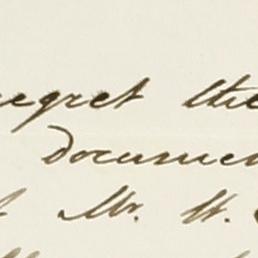 regret the
documen
Mr. H.